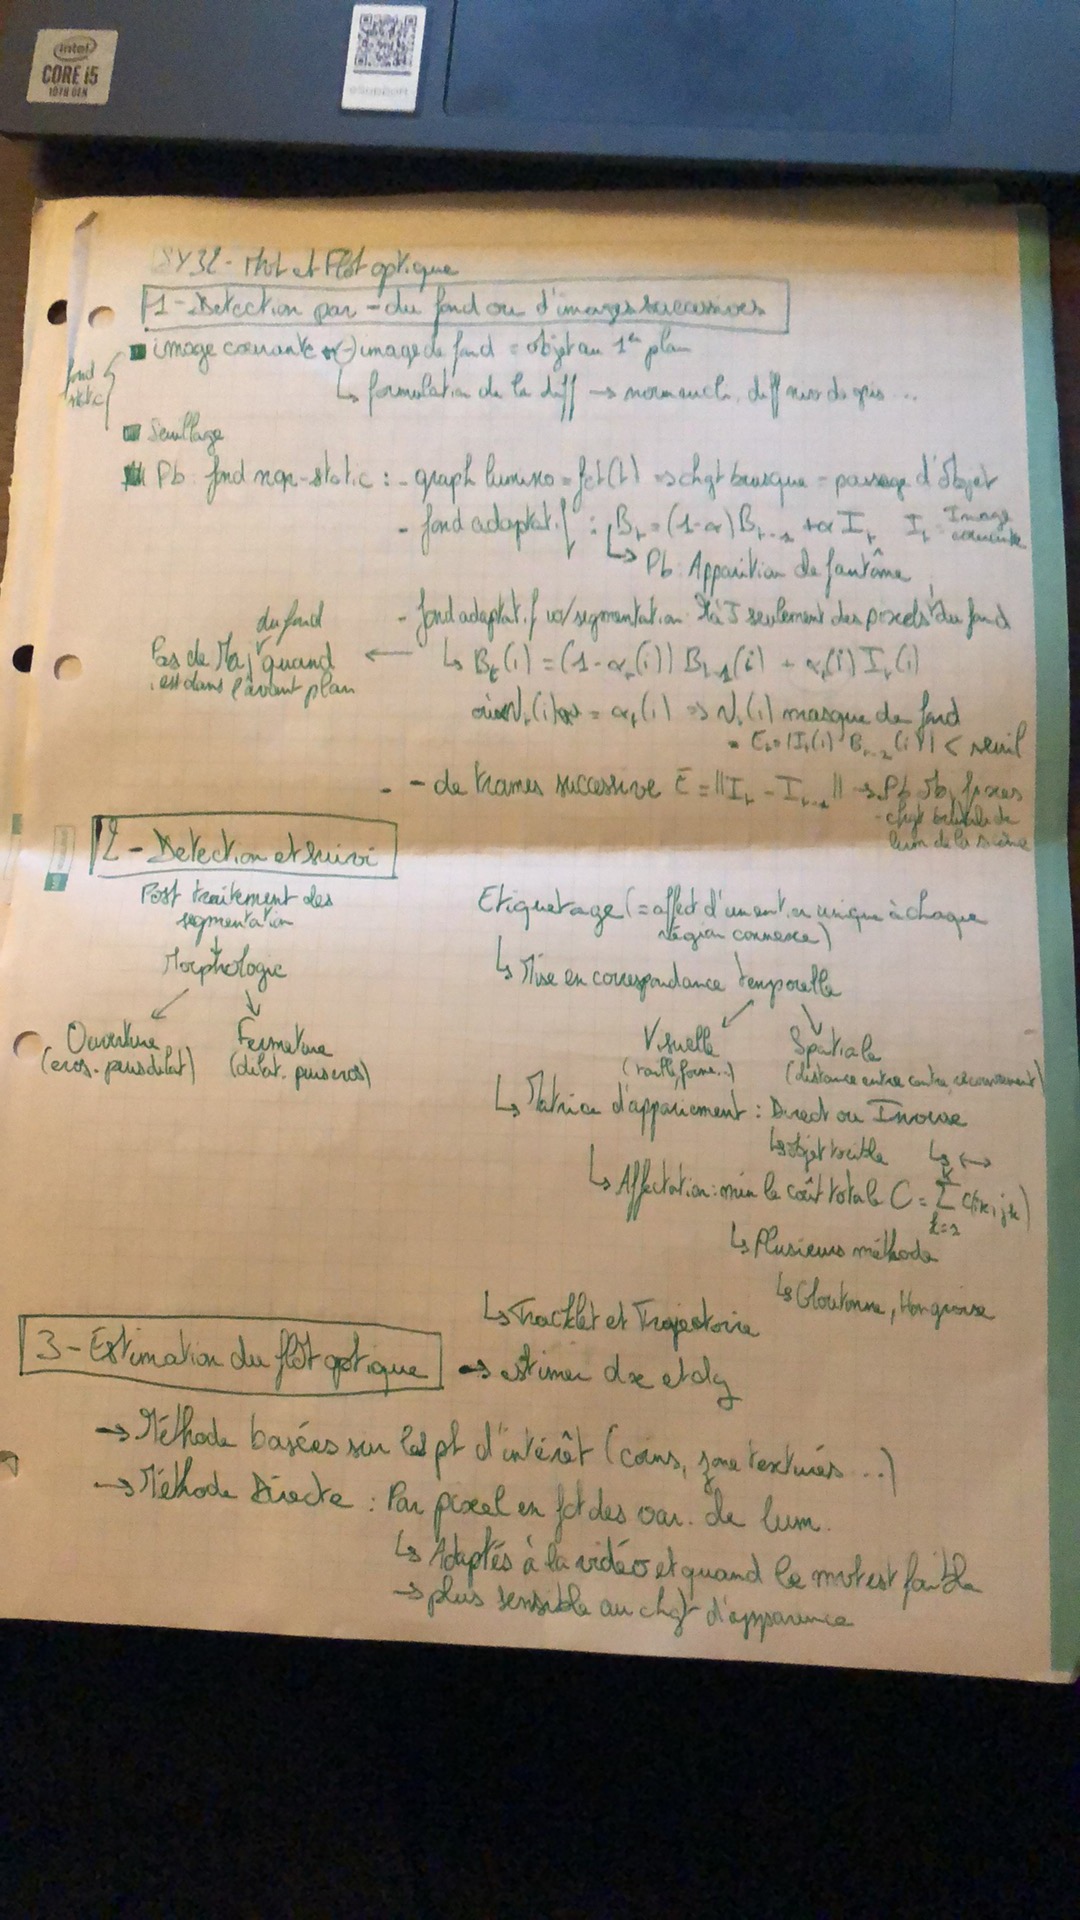 intel
CORE i5
10TH GEN
SY32 - Mvt et Flot optique
1 - Detection par - du fond ou d'images successives
image courante (-) image de fond = objet au 1er plan
fond static
↳ formulation de la diff → norme eucli, diff niv de gris ...
Seuillage
Pb fond non-static : - graph lumino = fct(t) => chgt brusque = passage d'objet
- fond adaptatif : Bt = (1-α) Bt-1 + α It It = Image courante
↳ Pb : Apparition de fantôme
- fond adaptatif w/ segmentation MàJ seulement des pixels du fond
du fond
Pas de Maj quand
i est dans l'avant plan
← ↳ Bt(i) = (1 - αt(i)) Bt-1(i) + αt(i) It(i)
αt(i) => Nt(i) masque de fond
|It(i) Bt-1(i)| < seuil
- - de trames successive E = ||It - It-1|| → Pb obj fixes
- chgt brutale de
lum de la scène
2 - Detection et suivi
Post traitement des
segmentation
↓
Morphologie
Ouverture
(eros. puis dilat)
Fermeture
(dilat. puis eros)
Etiquetage (= affect d'un ent.er unique à chaque
région connexe)
↳ Mise en correspondance temporelle
Visuelle
(taille, forme..)
Spatiale
(distance entre centre, recouvrement)
↳ Matrice d'appariement : Direct ou Inverse
↳ objet → cible ↳ ↔
↳ Affectation : min le coût totale C = Σ(k=1, K) c(ik, jk)
↳ Plusieurs méthode
↳ Gloutonne, Hongroise
↳ Tracklet et Trajectoire
3 - Estimation du flot optique → estimer dx et dy
→ Méthode basées sur les pt d'intérêt (coins, zone texturés ...)
→ Méthode Directe : Par pixel en fct des var. de lum.
↳ Adaptés à la vidéo et quand le mvt est faible
→ plus sensible au chgt d'apparence